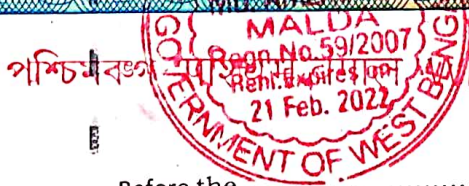 MALDA
Regn.No.59/2007
Renl. Expires on
21 Feb. 2022
GOVERNMENT OF WEST BENG
পশ্চিমবঙ্গ
Before the